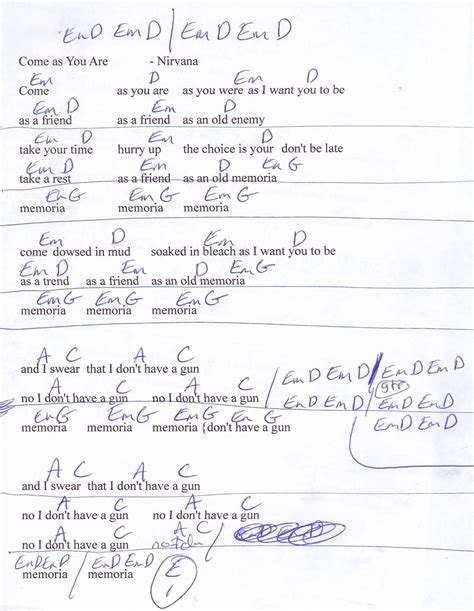 Em D Em D / Em D Em D
Come as You Are - Nirvana
Em D Em D
Come as you are as you were as I want you to be
Em D Em D
as a friend as a friend as an old enemy
Em D Em D
take your time hurry up the choice is your don't be late
Em D Em D Em G
take a rest as a friend as an old memoria
Em G Em G Em G
memoria memoria memoria
Em D Em D
come dowsed in mud soaked in bleach as I want you to be
Em D Em D Em G
as a trend as a friend as an old memoria
Em G Em G Em G
memoria memoria memoria
A C A C
and I swear that I don't have a gun
A C A C / Em D Em D / Em D Em D
gtr
no I don't have a gun no I don't have a gun / Em D Em D / Em D Em D
Em G Em G Em G Em G Em D Em D
memoria memoria memoria {don't have a gun
A C
and I swear that I don't have a gun
A C A C
no I don't have a gun no I don't have a gun
A C A C
no I don't have a gun
Em D Em D / Em D Em D E
memoria memoria 1